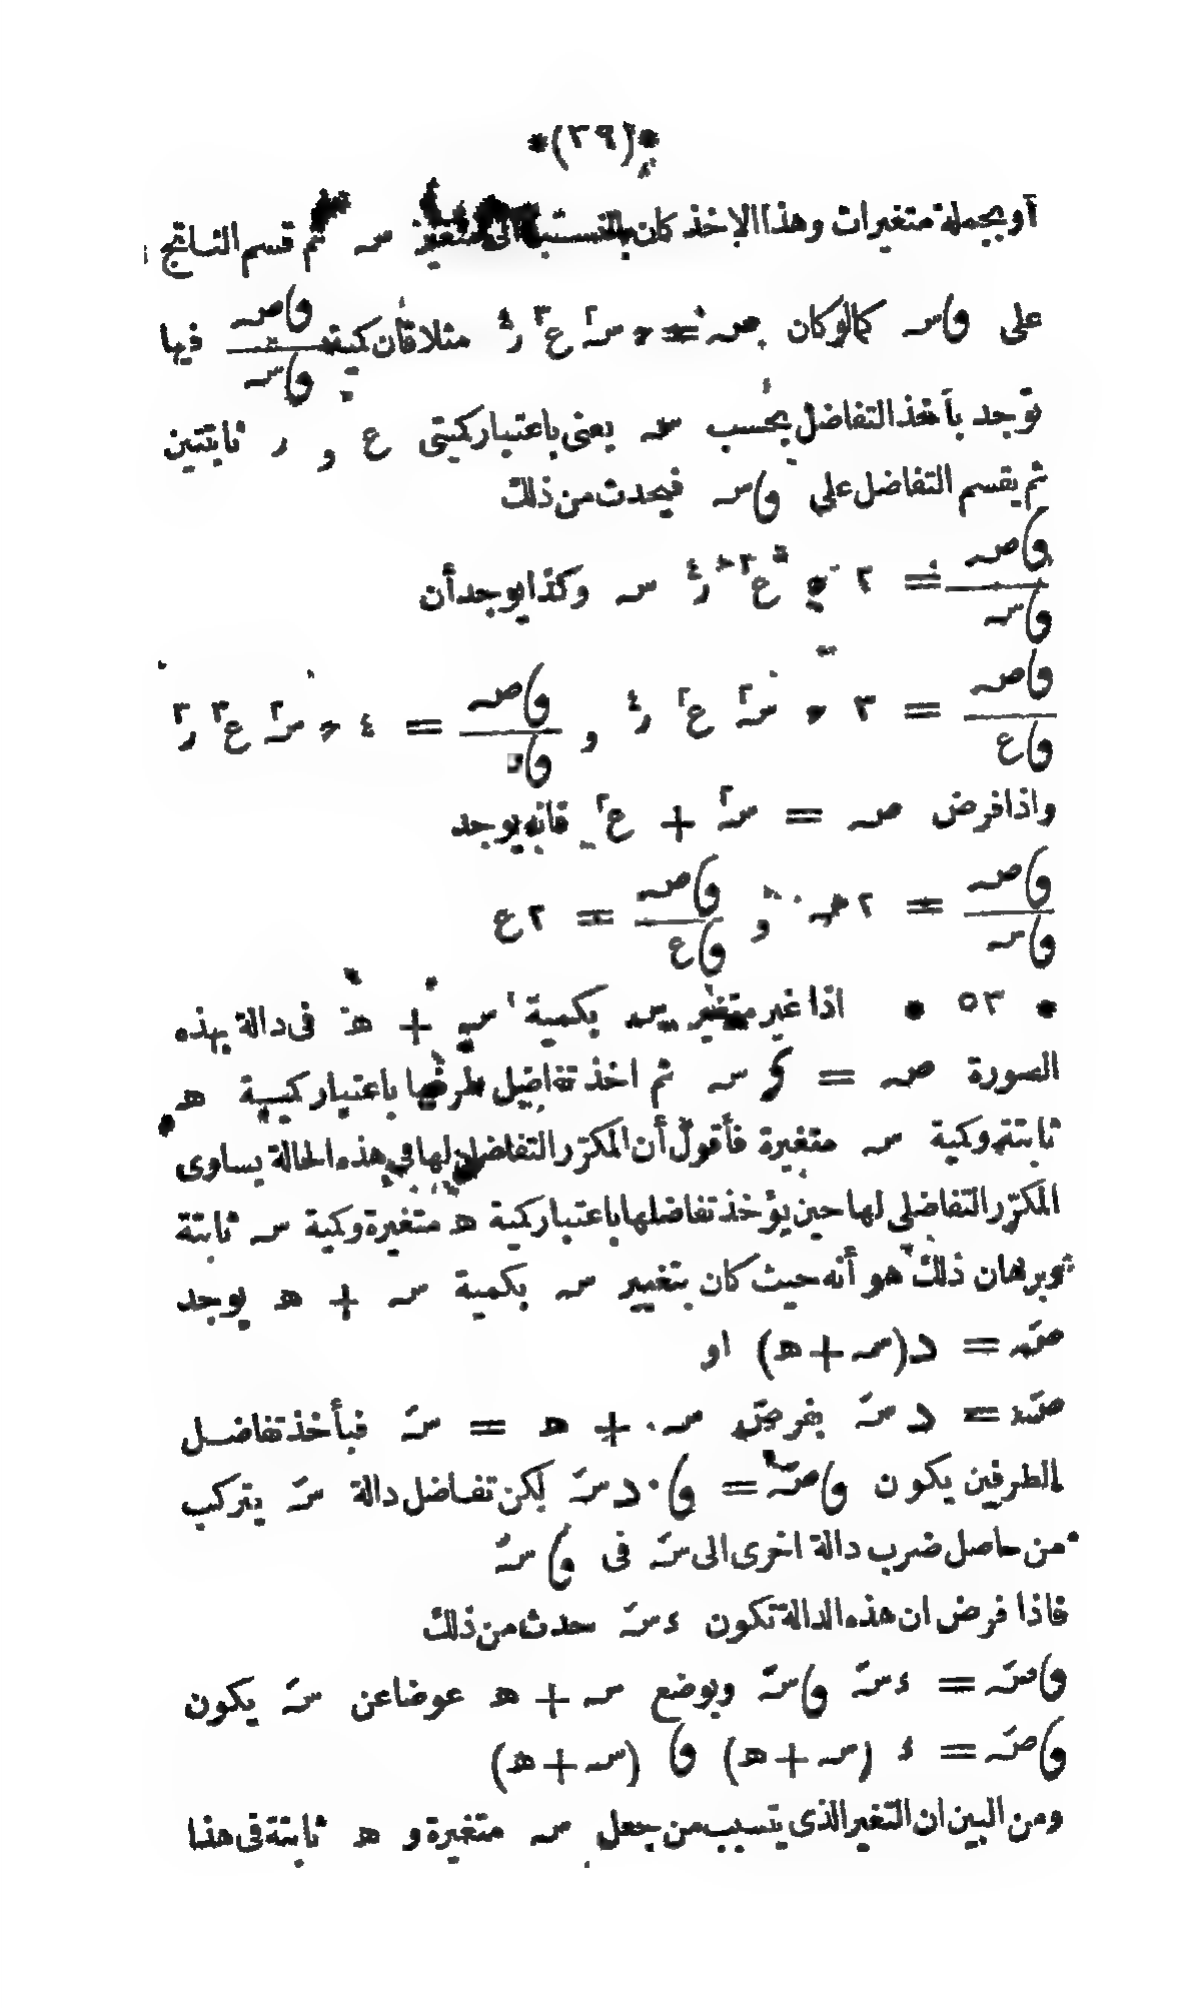 *(٣٩)*
أو بجملة متغيرات وهذا الاخذ كان بالنسبة الى متغير سـ ثم قسم الناتج
على ڡاسـ كما لو كان صـ = حـ سـ٢ ع٣ ر٤ مثلا فان كمية ڡاصـ/ڡاسـ فيها
توجد بأخذ التفاضل بحسب سـ يعنى باعتبار كميتى ع و ر ثابتتين
ثم يقسم التفاضل على ڡاسـ فيحدث من ذلك
ڡاصـ/ڡاسـ = ٢ حـ ع٣ ر٤ سـ وكذا يوجد أن
ڡاصـ/ڡاع = ٣ حـ سـ٢ ع٢ ر٤ و ڡاصـ/ڡار = ٤ حـ سـ٢ ع٣ ر٣
واذا فرض صـ = سـ٢ + ع٢ فانه يوجد
ڡاصـ/ڡاسـ = ٢سـ و ڡاصـ/ڡاع = ٢ع
* ٥٣ * اذا غير متغير سـ بكمية سـ + هـ فى دالة بهذه
الصورة صـ = د سـ ثم اخذ تفاضل طرفيها باعتبار كمية هـ
ثابتة وكمية سـ متغيرة فأقول أن المكرّر التفاضلى لها فى هذه الحالة يساوى
المكرّر التفاضلى لها حين يؤخذ تفاضلها باعتبار كمية هـ متغيرة وكمية سـ ثابتة
وبرهان ذلك هو أنه حيث كان بتغيير سـ بكمية سـ + هـ يوجد
صـَ = د(سـ + هـ) او
صـَ = د سـَ بفرض سـ + هـ = سـَ فبأخذ تفاضل
الطرفين يكون ڡاصـَ = ڡا.دسـَ لكن تفاضل دالة سـَ يتركب
من حاصل ضرب دالة اخرى الى سـَ فى ڡاسـَ
فاذا فرض ان هذه الدالة تكون ءسـَ حدث من ذلك
ڡاصـَ = ءسـَ ڡاسـَ وبوضع سـ + هـ عوضا عن سـَ يكون
ڡاصـَ = ء (سـ + هـ) ڡا (سـ + هـ)
ومن البين ان التغير الذى يتسبب من جعل سـ متغيرة و هـ ثابتة فى هذا